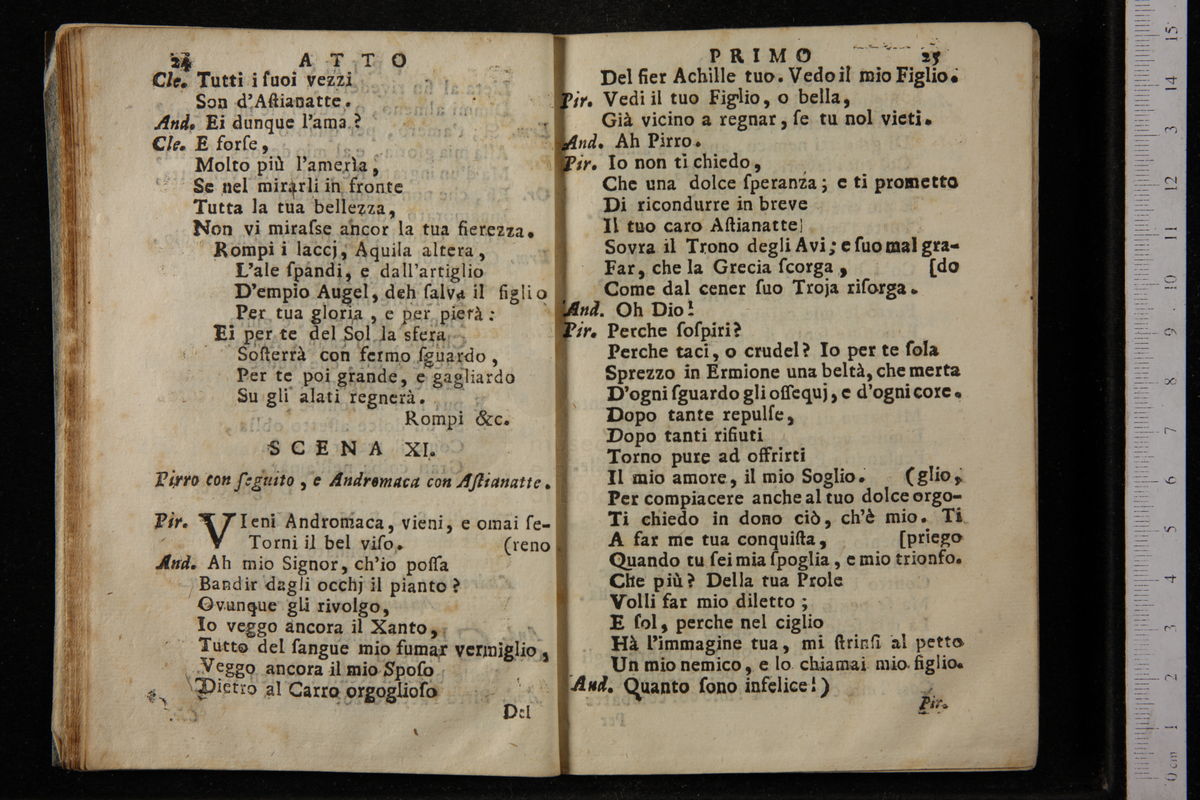 24 ATTO
Cle. Tutti i ſuoi vezzi
Son d'Aſtianatte.
And. Ei dunque l'ama?
Cle. E forſe,
Molto più l'amerìa,
Se nel mirarli in fronte
Tutta la tua bellezza,
Non vi miraſse ancor la tua fierezza.
Rompi i laccj, Aquila altera,
L'ale ſpandi, e dall'artiglio
D'empio Augel, deh ſalva il figlio
Per tua gloria, e per pietà:
Ei per te del Sol la sfera
Soſterrà con fermo ſguardo,
Per te poi grande, e gagliardo
Su gli alati regnerà.
Rompi &c.
SCENA XI.
Pirro con ſeguito, e Andromaca con Aſtianatte.
Pir. VIeni Andromaca, vieni, e omai ſe-
Torni il bel viſo. (reno
And. Ah mio Signor, ch'io poſſa
Bandir dagli occhj il pianto?
Ovunque gli rivolgo,
Io veggo ancora il Xanto,
Tutto del ſangue mio fumar vermiglio,
Veggo ancora il mio Spoſo
Dietro al Carro orgoglioſo
Del
PRIMO 25
Del fier Achille tuo. Vedo il mio Figlio.
Pir. Vedi il tuo Figlio, o bella,
Già vicino a regnar, ſe tu nol vieti.
And. Ah Pirro.
Pir. Io non ti chiedo,
Che una dolce ſperanza; e ti prometto
Di ricondurre in breve
Il tuo caro Aſtianatte
Sovra il Trono degli Avi; e ſuo mal gra-
Far, che la Grecia ſcorga, [do
Come dal cener ſuo Troja riſorga.
And. Oh Dio!
Pir. Perche ſoſpiri?
Perche taci, o crudel? Io per te ſola
Sprezzo in Ermione una beltà, che merta
D'ogni ſguardo gli oſſequj, e d'ogni core.
Dopo tante repulſe,
Dopo tanti rifiuti
Torno pure ad offrirti
Il mio amore, il mio Soglio. (glio,
Per compiacere anche al tuo dolce orgo-
Ti chiedo in dono ciò, ch'è mio. Ti
A far me tua conquiſta, [priego
Quando tu ſei mia ſpoglia, e mio trionfo.
Che più? Della tua Prole
Volli far mio diletto;
E ſol, perche nel ciglio
Hà l'immagine tua, mi ſtrinſi al petto
Un mio nemico, e lo chiamai mio figlio.
And. Quanto ſono infelice!)
Pir.